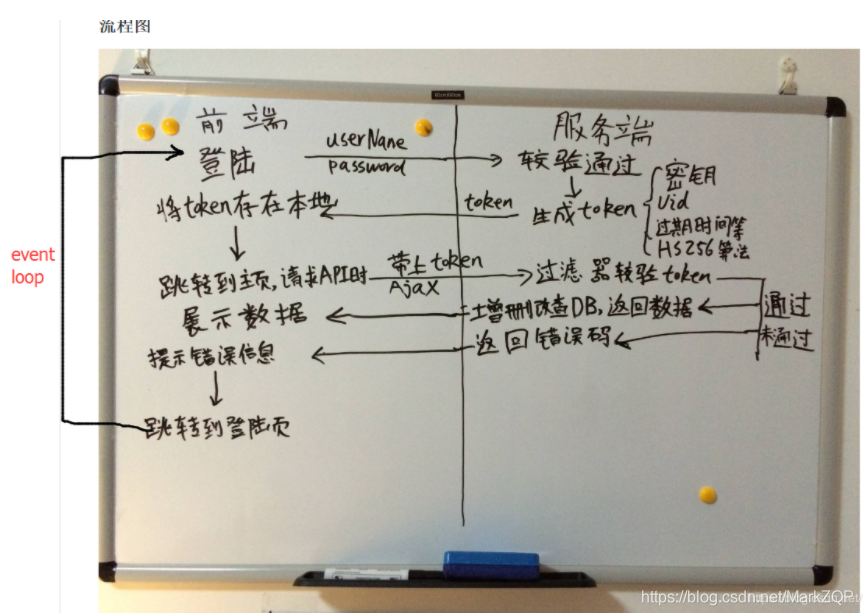 流程图
前端
服务端
登陆
userNane
password
较验通过
密钥
Uid
过期时间等
HS256算法
将token存在本地
token
生成token
跳转到主页,请求API时
带上token
AjaX
过滤器较验token
event
loop
展示数据
增删改查DB,返回数据
通过
提示错误信息
返回错误码
未通过
跳转到登陆页
https://blog.csdn.net/MarkZQP